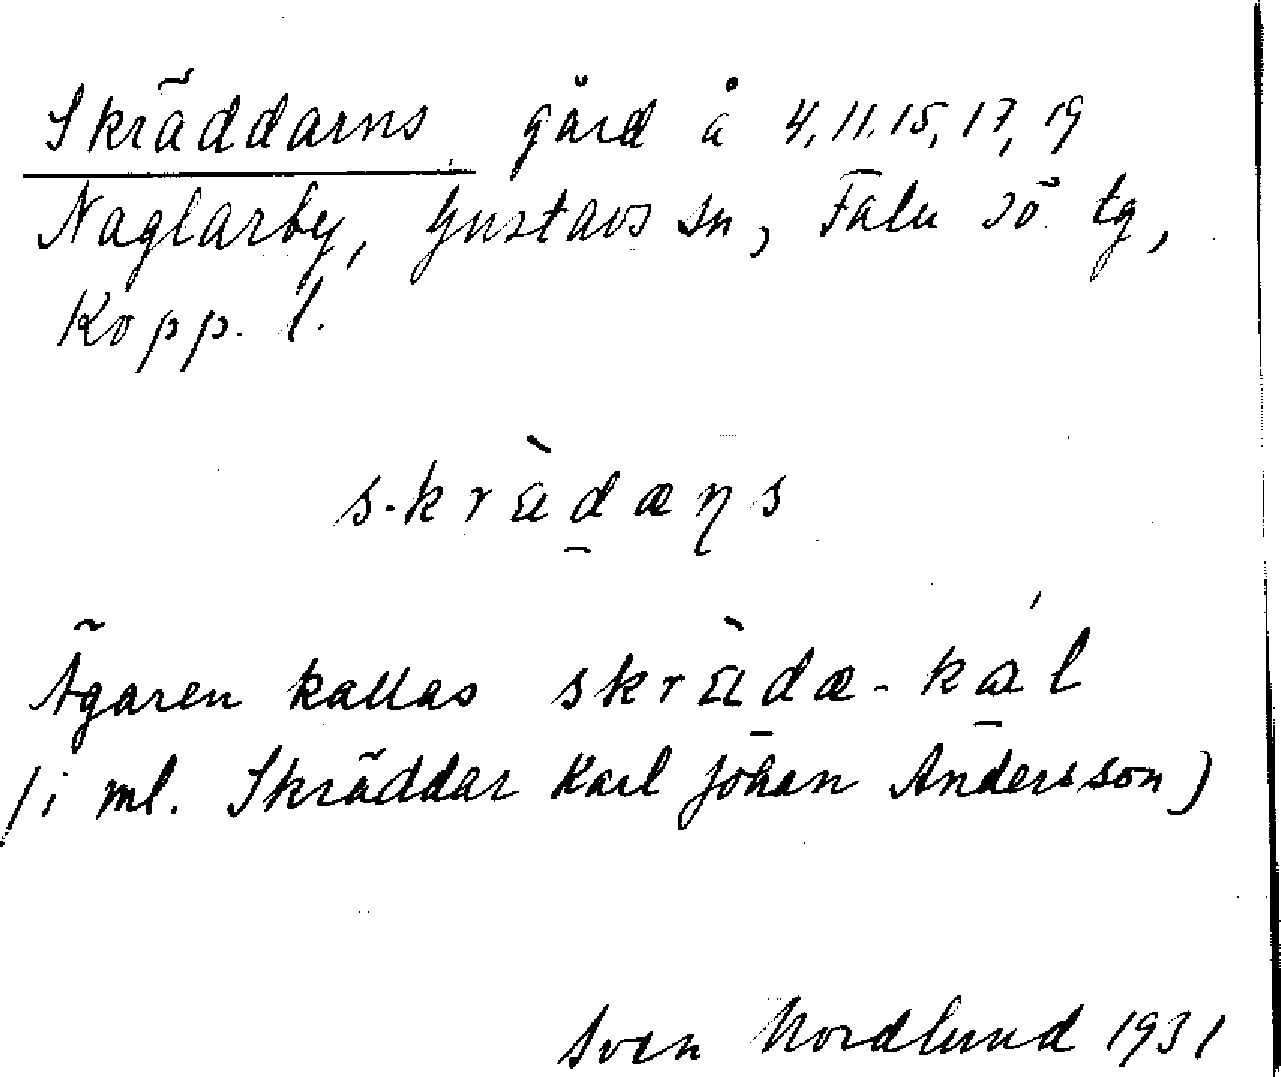 Skräddarns gård å 4, 11, 15, 17, 19
Naglarby, Gustavs sn, Falu sö tg,
Kopp. l.
skrædæŋs
Ägaren kallas skrædæ-kal
(i ml. Skräddar Karl Johan Andersson)
Sven Nordlund 1931